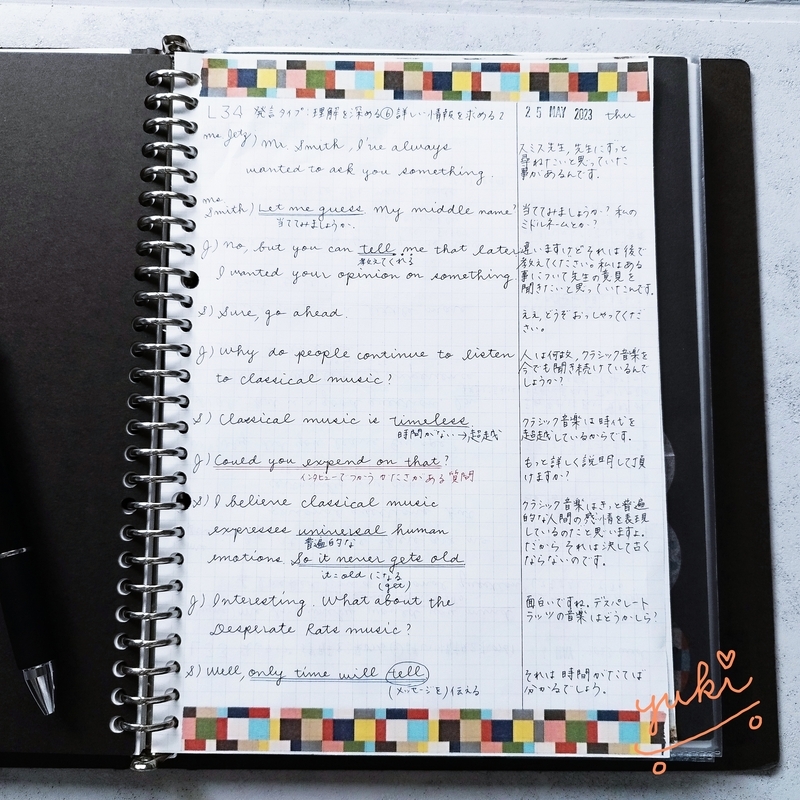 L34 発言タイプ:理解を深める⑥詳しい情報を求める2
25 MAY 2023 thu
Ms. Jetz) Mr Smith, I've always
wanted to ask you something.
スミス先生, 先生にずっと
尋ねたいと思っていた
事があるんです。
Ms. Smith) Let me guess My middle name?
当ててみましょうか。
当ててみましょうか? 私の
ミドルネームとか?
J) No, but you can tell me that later
教えてくれる
I wanted your opinion on something
違いますけどそれは後で
教えてください。私はある
事について先生の意見を
聞きたいと思っていたんです。
S) Sure, go ahead.
ええ, どうぞおっしゃってくだ
さい。
J) Why do people continue to listen
to classical music?
人は何故, クラシック音楽を
今でも聞き続けているんで
しょうか?
S) Classical music is timeless.
時間がない→超越
クラシック音楽は時代を
超越しているからです。
J) Could you expend on that?
インタビューでつかう かたさがある質問
もっと詳しく説明して頂
けますか?
S) I believe classical music
expresses universal human
普遍的な
emotions. So it never gets old
it = old になる
(get)
クラシック音楽はきっと普遍
的な人間の感情を表現
しているのだと思いますよ。
だから それは決して古く
ならないのです。
J) Interesting. What about the
Desperate Rats music?
面白いですね。デスパレート
ラッツの音楽はどうかしら?
S) Well, only time will tell
(メッセージを)伝える
それは時間がたてば
分かるでしょう。
yuki